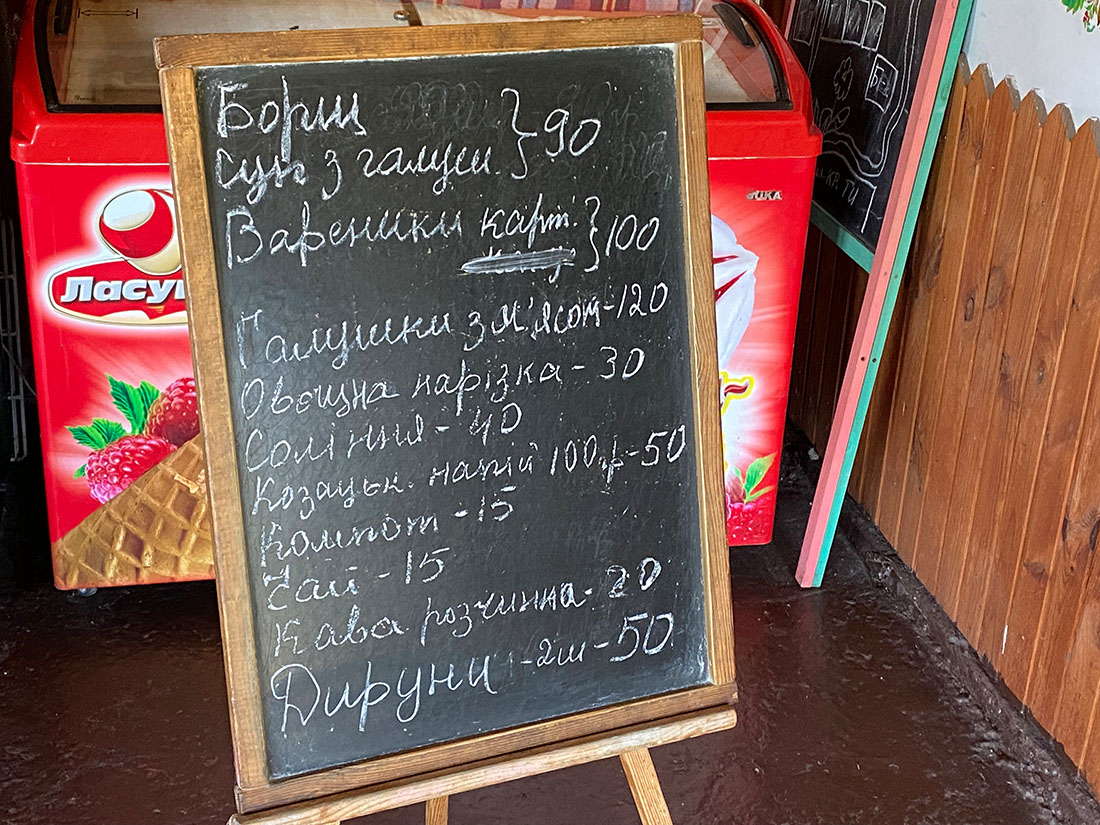 Борщ
Суп з галуш. } 90
Вареники карт. } 100
Галушки з м'ясом-120
Овочна нарізка - 30
Соління - 40
Козацьк. напій 100гр-50
Компот -15
Чай - 15
Кава розчинна - 20
Дируни -2ш-50
Ласу